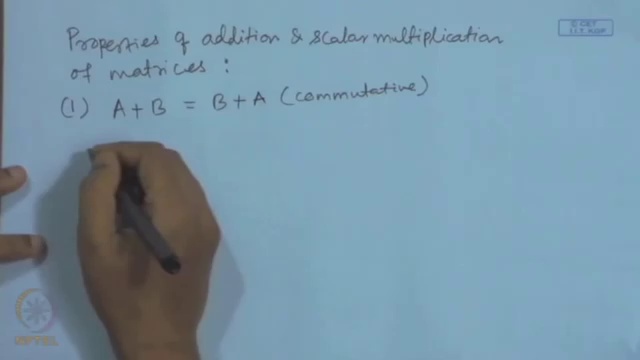 Properties of addition & scalar multiplication
of matrices :
(1) A + B = B + A (commutative)
© CET
I.I.T. KGP
NPTEL